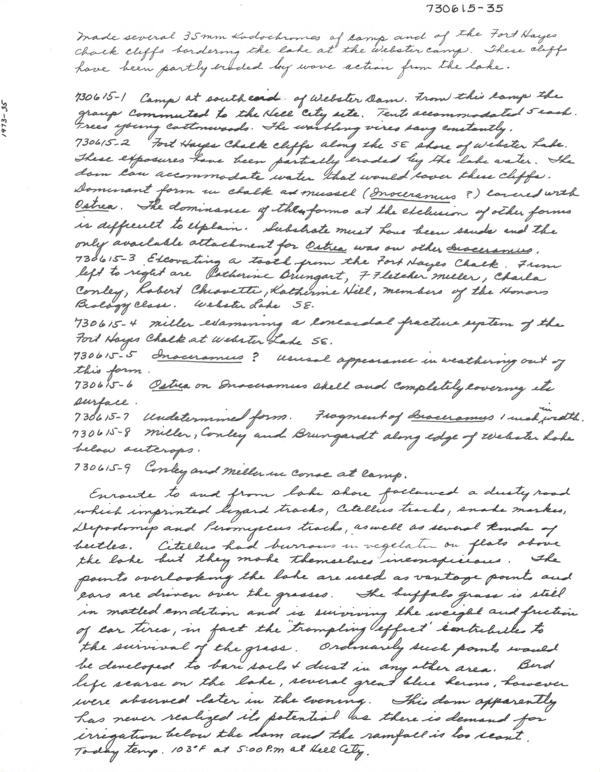 730615-35
1973-35
Made several 35mm Kodochromes of camp and of the Fort Hayes
Chalk cliffs bordering the lake at the Webster camp. These cliffs
have been partly eroded by wave action from the lake.
730615-1 Camp at south end of Webster Dam. From this camp the
group commuted to the Hell City site. Tent accommodated 5 each.
Trees young cottonwoods. The warbling vireo sang constantly.
730615-2 Fort Hayes Chalk cliffs along the SE shore of Webster Lake.
These exposures have been partially eroded by the lake water. The
dam can accommodate water that would cover these cliffs.
Dominant form in chalk a mussel (Inoceramus ?) covered with
Ostrea. The dominance of these forms at the exclusion of other forms
is difficult to explain. Substrate must have been sands and the
only available attachment for Ostrea was on other Inoceramus.
730615-3 Excavating a tooth from the Fort Hayes Chalk. From
left to right are Katherine Brungart, F. Fletcher Miller, Charla
Conley, Robert Chiavette, Katherine Hill, members of the Honors
Biology Class. Webster Lake SE.
730615-4 Miller examining a fracture system of the
Fort Hayes Chalk at Webster Lake SE.
730615-5 Inoceramus ? Unusual appearance in weathering out of
this form.
730615-6 Ostrea on Inoceramus shell and completely covering its
surface.
730615-7 Undetermined form. Fragment of Inoceramus 1 inch in width.
730615-8 Miller, Conley and Brungardt along edge of Webster Lake
below outcrops.
730615-9 Conley and Miller in canoe at camp.
Enroute to and from lake shore followed a dusty road
which imprinted lizard tracks, Citellus tracks, snake marks,
Dipodomys and Peromyscus tracks, as well as several kinds of
beetles. Citellus had burrows in vegetation on flats above
the lake but they make themselves inconspicuous. The
points overlooking the lake are used as vantage points and
cars are driven over the grasses. The buffalo grass is still
in matted condition and is surviving the weight and friction
of car tires, in fact the "trampling effect" contributes to
the survival of the grass. Ordinarily such points would
be developed to bare soils & dust in any other area. Bird
life scarse on the lake, several great blue herons, however
were observed later in the evening. This dam apparently
has never realized its potential as there is demand for
irrigation below the dam and the rainfall is too scant.
Today temp. 103°F at 5:00 P.m at Hell City.